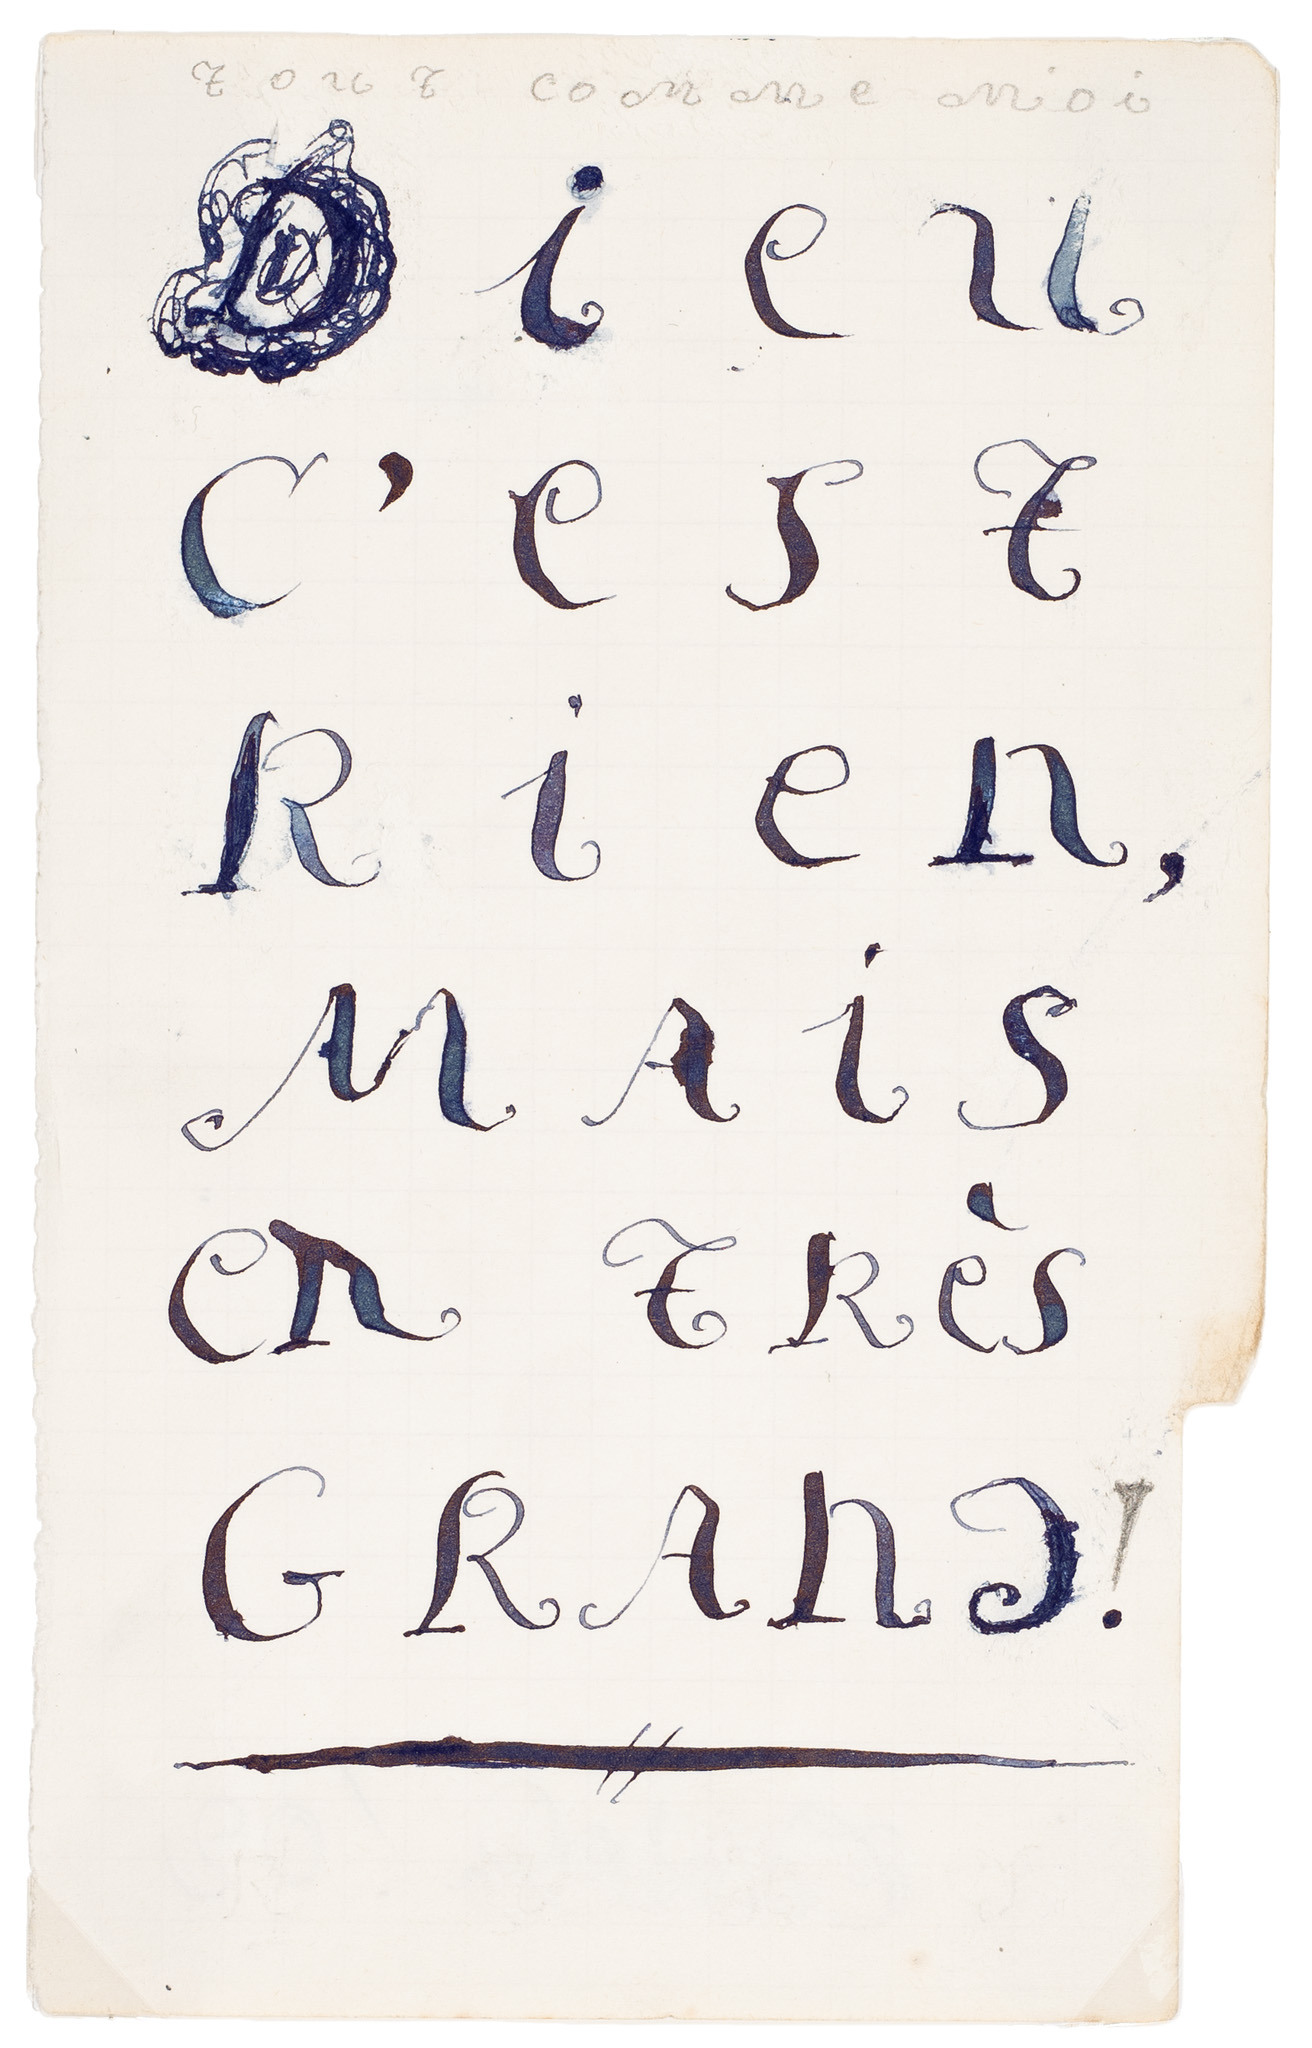 tout comme moi
Dieu
C'est
Rien,
MAis
en tRès
GRAND!